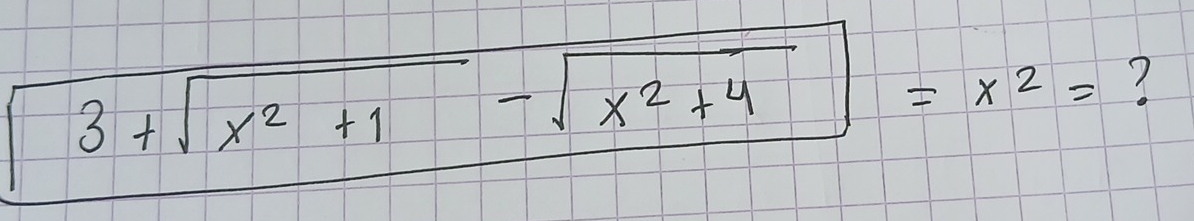 3 + √(x² + 1) - √(x² + 4) = x² = ?